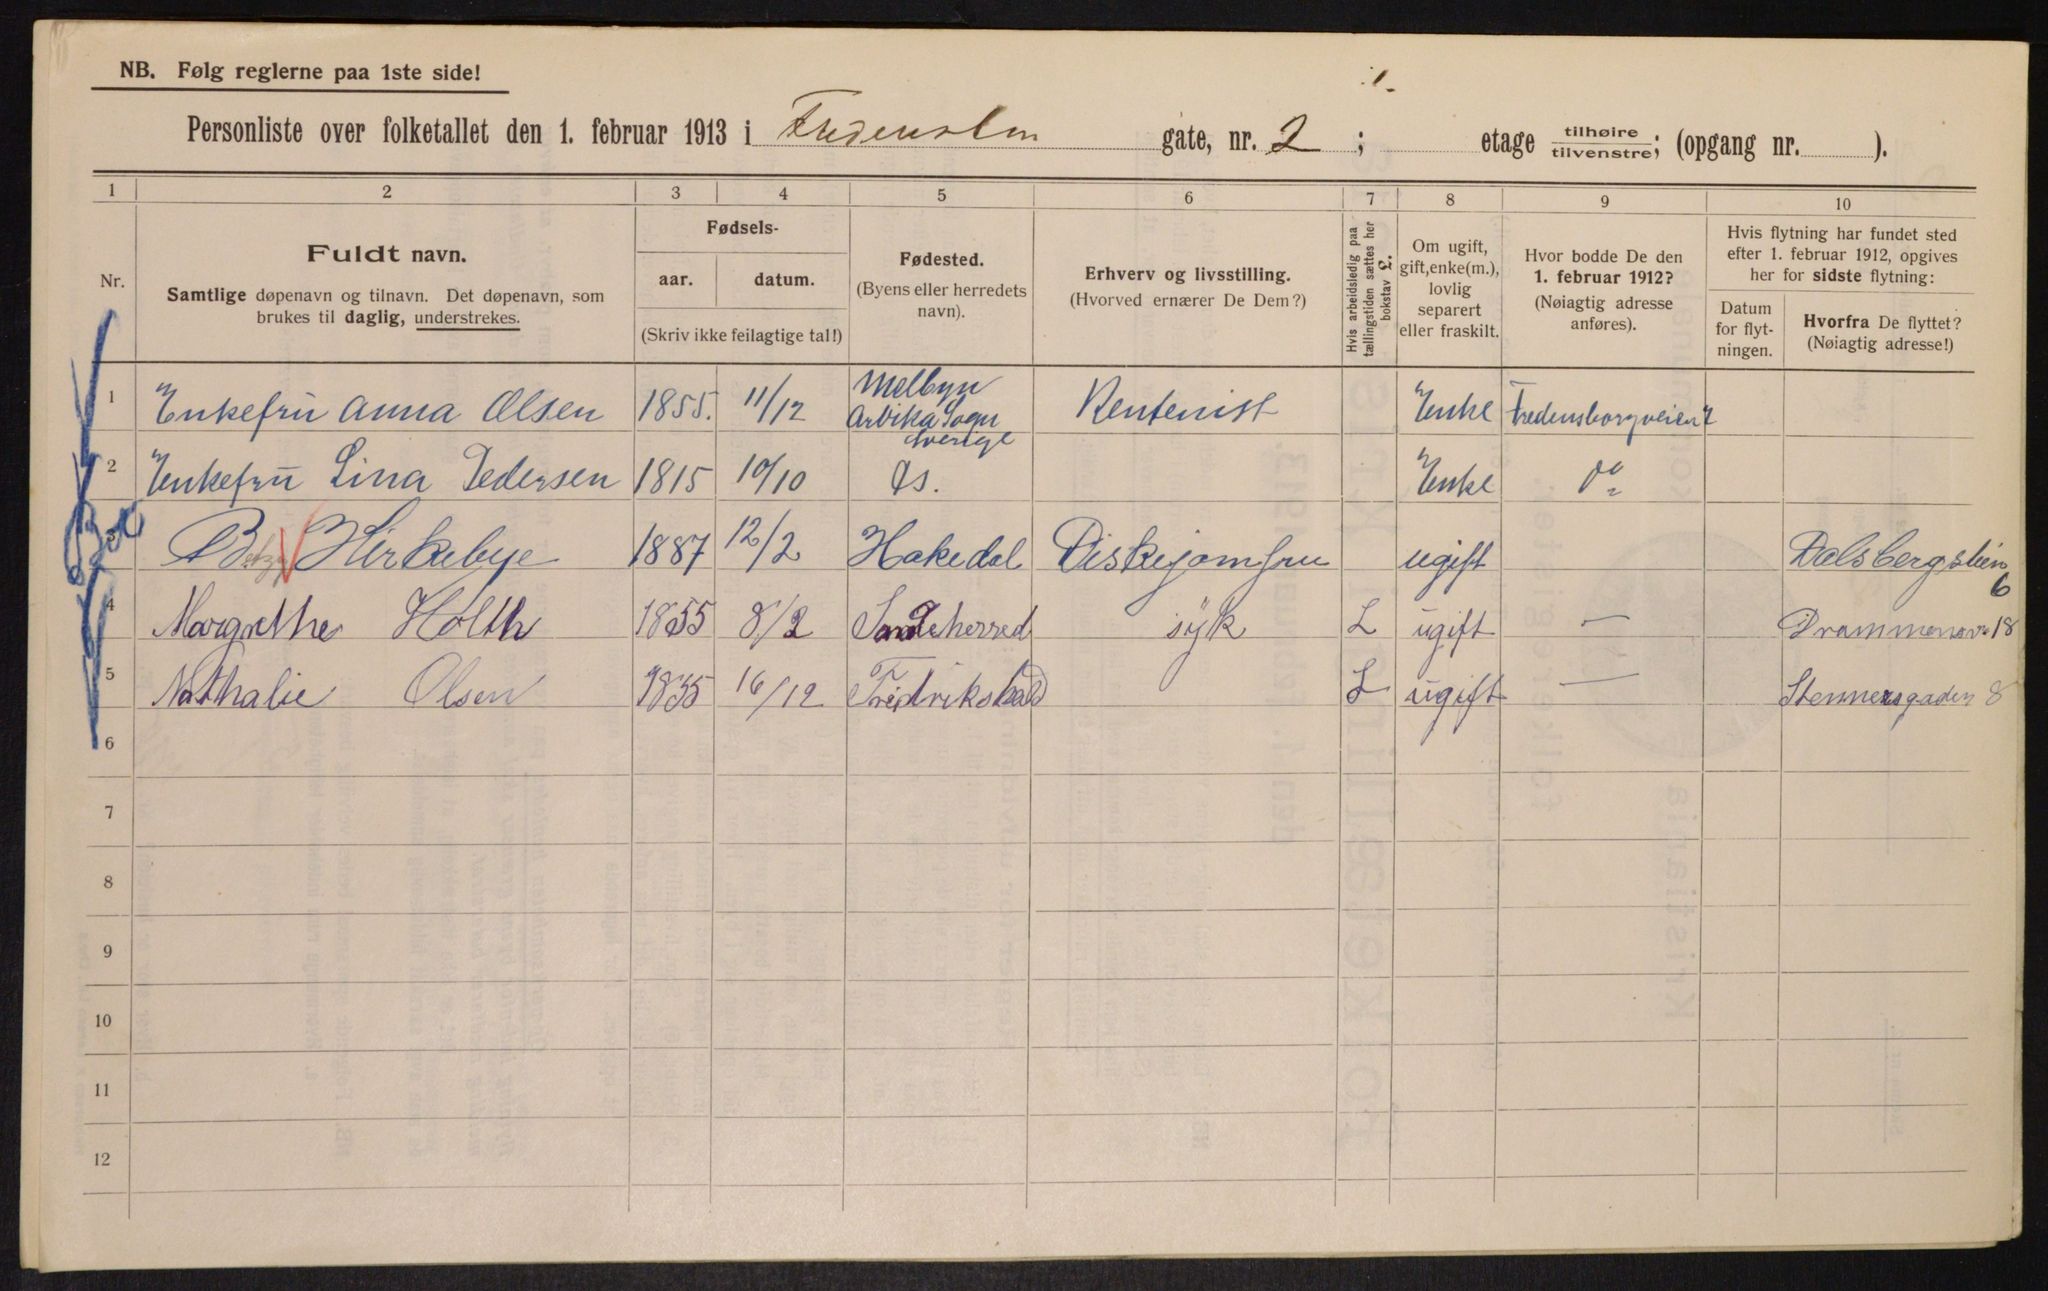 NB. Følg reglerne paa 1ste side!
Personliste over folketallet den 1. februar 1913 i gate, nr. 2 ; etage tilhøire/tilvenstre; (opgang nr. ).
1 2 3 4 5 6 7 8 9 10
Nr.
Fuldt navn.
Samtlige døpenavn og tilnavn. Det døpenavn, som
brukes til daglig, understrekes.
Fødsels-
aar. datum.
(Skriv ikke feilagtige tal!)
Fødested.
(Byens eller herredets
navn).
Erhverv og livsstilling.
(Hvorved ernærer De Dem?)
Hvis arbeidsledig paa
tællingstiden sættes her
bokstav L.
Om ugift,
gift, enke(m.),
lovlig
separert
eller fraskilt.
Hvor bodde De den
1. februar 1912?
(Nøiagtig adresse
anføres).
Hvis flytning har fundet sted
efter 1. februar 1912, opgives
her for sidste flytning:
Datum
for flyt-
ningen.
Hvorfra De flyttet?
(Nøiagtig adresse!)
1 Enkefru Anna Olsen 1855. 11/12 Melbyn Arvika Sogn Sverige Rentenist Enke Fredensborgveien 2
2 Enkefru Lina Pedersen 1815 10/10 Ås. Enke Do
3 Kirkebye 1887 12/2 Hakedal Diskejomfru ugift 6
4 Margrethe Holth 1855 8/2 Sandeherred syk L ugift — Drammensv. 18
5 Nathalie Olsen 1835 16/12 Fredrikshald L ugift — Stenersgaden 8
6
7
8
9
10
11
12